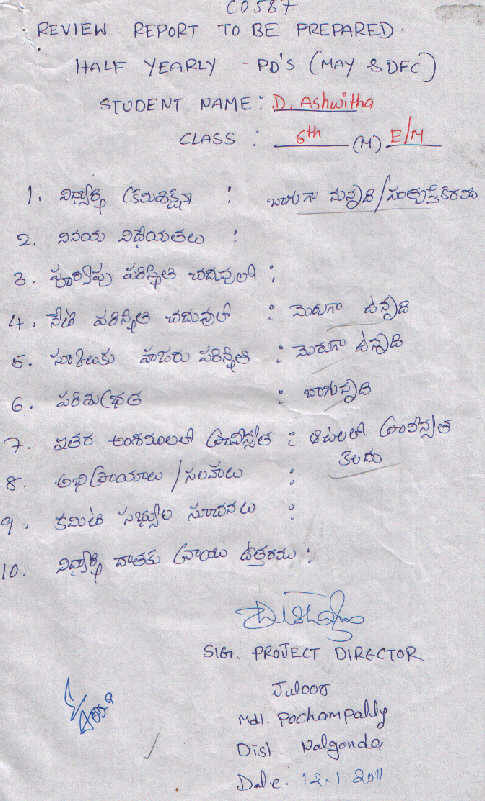 C0587
REVIEW REPORT TO BE PREPARED.
HALF YEARLY - PD'S (MAY & DEC)
STUDENT NAME: D. Ashwitha
CLASS : 6th (M) E/M
1. విద్యార్థి క్రమశిక్షణ : బాగుగా ఉన్నది/సంతృప్తికరము
2. వినయ విధేయతలు :
3. పూర్వపు పరిస్థితి చదువులో :
4. నేటి పరిస్థితి చదువులో : మెరుగా ఉన్నది
5. స్కూలుకు హాజరు పరిస్థితి : మెరుగా ఉన్నది
6. పరిశుభ్రత : బాగున్నది
7. ఇతర అంశములలో ప్రావీణ్యత : ఆటలలో ప్రావీణ్యత
కలదు
8. అభిప్రాయాలు / సలహాలు :
9. కమిటీ సభ్యుల సూచనలు :
10. విద్యార్థి దాతకు వ్రాయు ఉత్తరము :
SIG. PROJECT DIRECTOR
Juloor
Mdl. Pochampally
Dist Nalgonda
Date. 12.1 2011